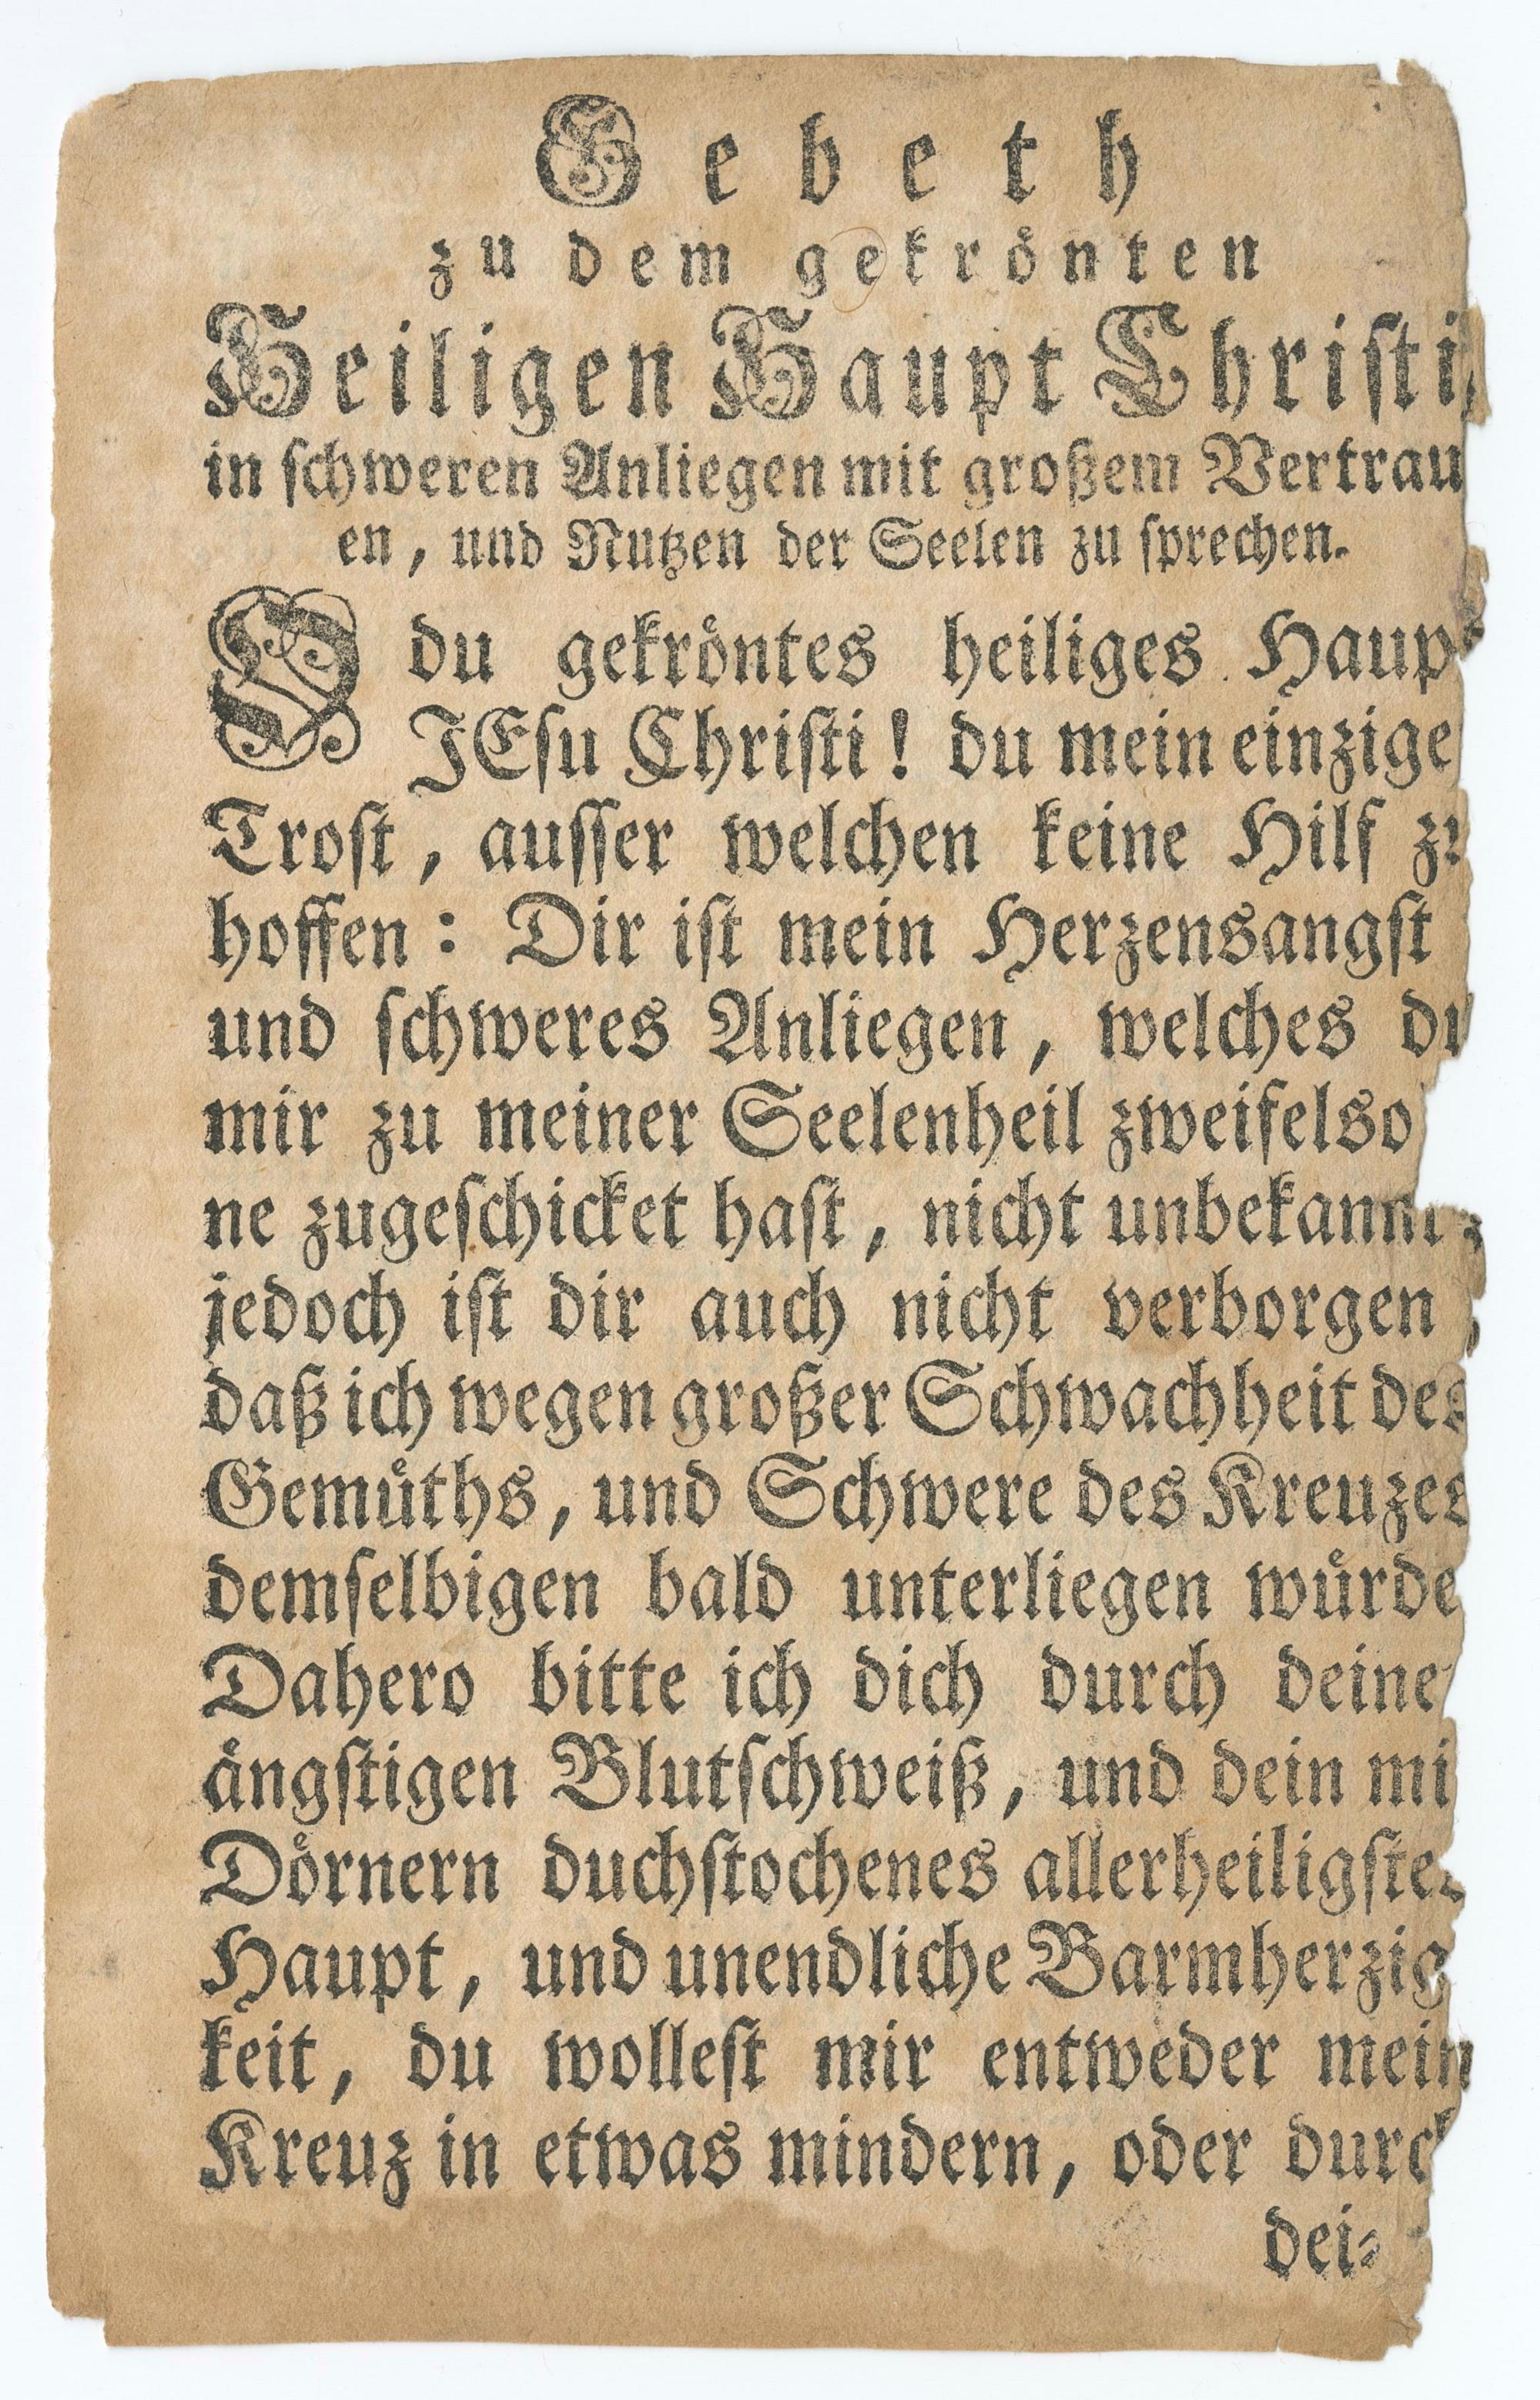 Gebeth
zu dem gekrönten
Heiligen Haupt Christi,
in schweren Anliegen mit großem Vertrau
en, und Nutzen der Seelen zu sprechen.
O du gekröntes heiliges Haup
JEsu Christi! du mein einzige
Trost, ausser welchen keine Hilf zu
hoffen: Dir ist mein Herzensangst
und schweres Anliegen, welches du
mir zu meiner Seelenheil zweifelso
ne zugeschicket hast, nicht unbekannt
jedoch ist dir auch nicht verborgen,
daß ich wegen großer Schwachheit des
Gemüths, und Schwere des Kreuzes
demselbigen bald unterliegen würde
Dahero bitte ich dich durch deine
ängstigen Blutschweiß, und dein mi
Dörnern duchstochenes allerheiligstes
Haupt, und unendliche Barmherzig
keit, du wollest mir entweder mein
Kreuz in etwas mindern, oder durch
dei-